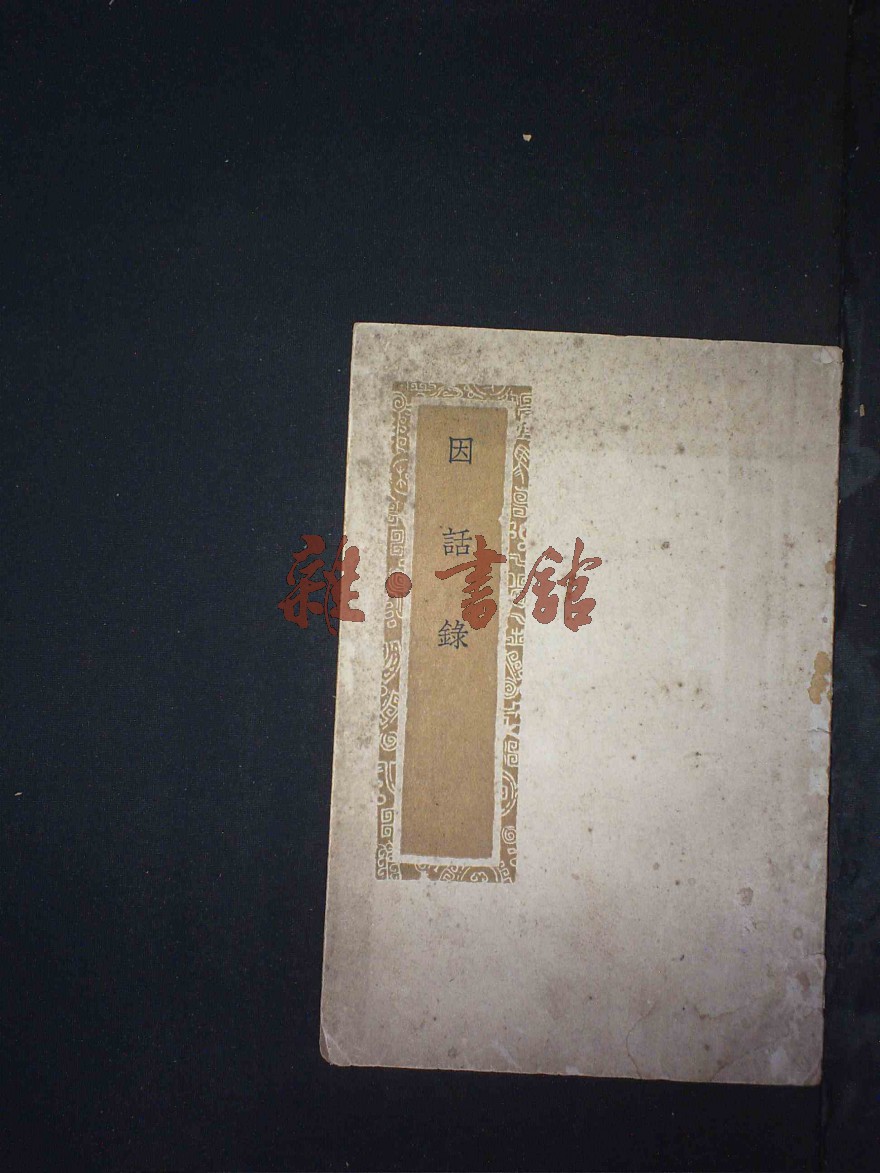 因話錄
雜·書館